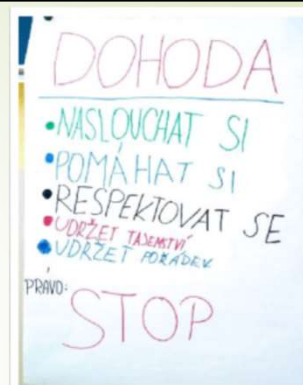 DOHODA
• NASLOUCHAT SI
• POMÁHAT SI
• RESPEKTOVAT SE
• UDRŽET TAJEMSTVÍ
• UDRŽET POŘÁDEK
PRÁVO:
STOP